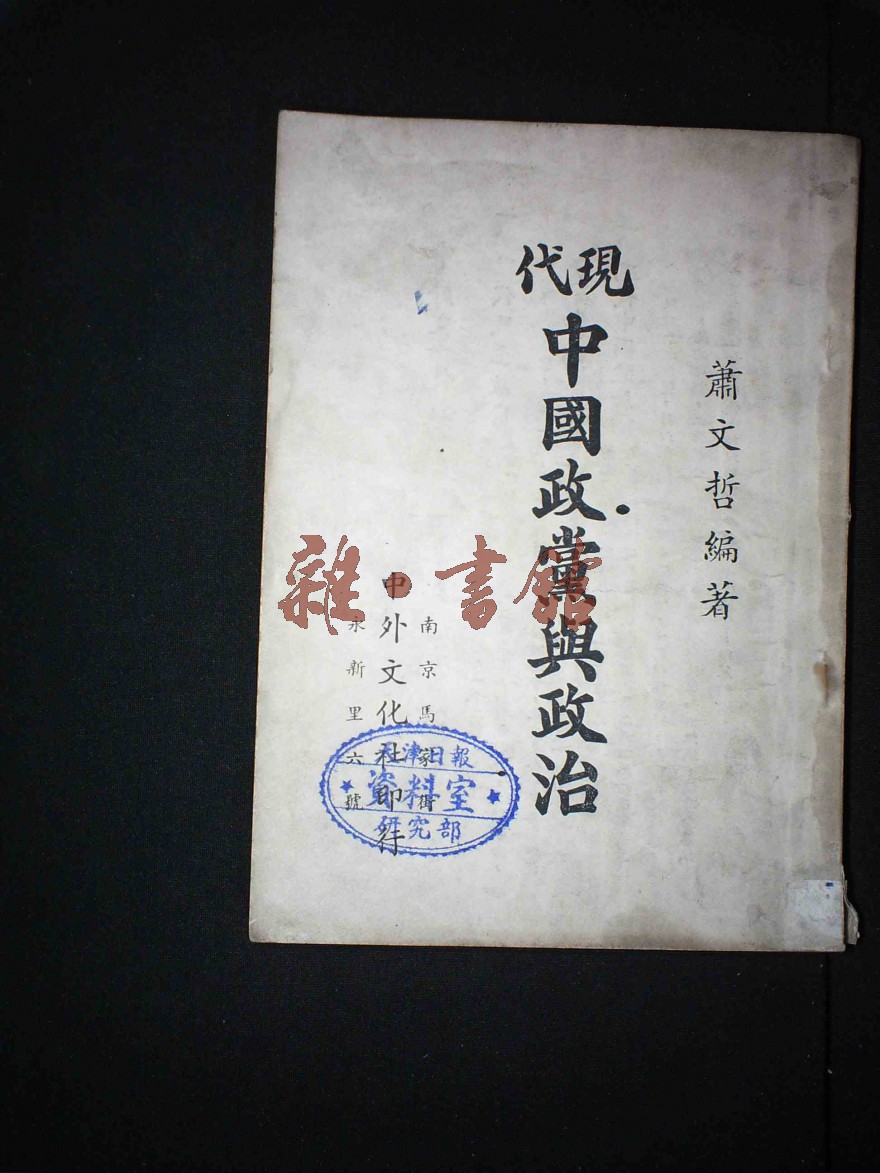 蕭文哲編著
現代
中國政黨與政治
南京馬家街
中外文化社印行
永新里六號
天津日報
資料室
研究部
雜·書館